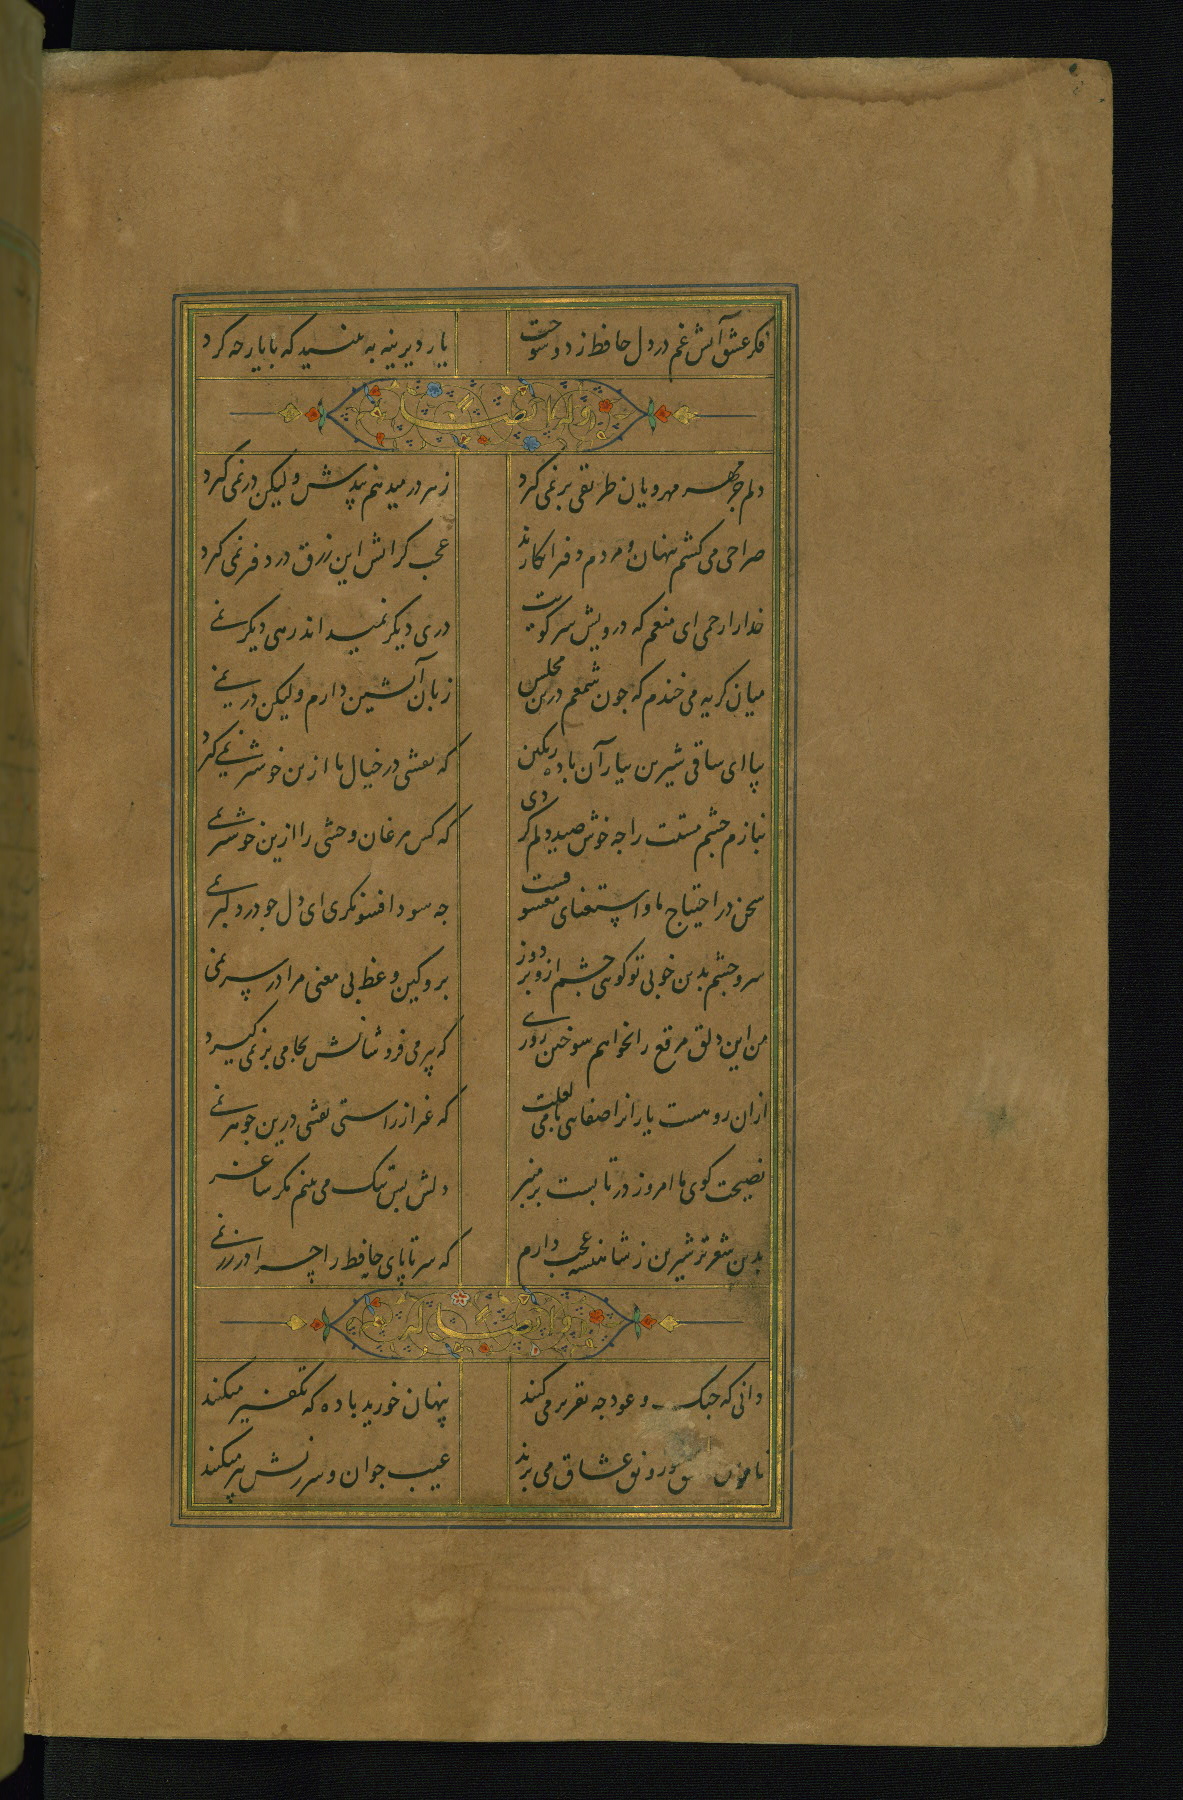 فکر عشق آتش غم در دل حافظ زد و سوخت یار دیرینه به بینید که با یار چه کرد
وله ایضا
دلم جز مهر مهرویان طریقی بر نمی کرد ز هر در میدهم پندش و لیکن در نمی کرد
صراحی می کشم پنهان و مردم دفتر انکارند عجب کر آتش این زرق در دفتر نمی کرد
خدا را رحمی ای منعم که درویش سر کویت دری دیکر نمیداند رهی دیکر نمی
میان کریه می خندم که چون شمعم درین مجلس زبان آتشین دارم ولیکن در نمی
بیا ای ساقی شیرین بیار آن باده رنکین که نقشی در خیال ما ازین خوشتر نمی کرد
بنازم چشم مستت را چه خوش صید دلم کردی که کس مرغان وحشی را ازین خوشتر نمی
سخن در احتیاج ما و استغنای معشوقست چه سود افسونکری ای دل چو در دلبر نمی
سر و چشم بدین خوبی تو کوئی چشم ازو بر دوز برو کین وعظ بی معنی مرا در سر نمی
من این دلق مرقع را نخواهم سوختن روزی که پیر می فروشانش بجامی بر نمی کیرد
ازان رو هست یاران را صفاهی با می لعلت که غیر از راستی نقشی درین جوهر نمی
نصیحت کوی ما امروز در تا بست بر منبر دلش بس تنک می بینم مکر ساغر
بدین شعر تر شیرین ز شاهنشه عجب دارم که سر تا پای حافظ را چرا در زر نمی
وله ایضا
دانی که چنک و عود چه تقریر می کنند پنهان خورید باده که تکفیر میکنند
ناموس عشق و رونق عشاق می برند عیب جوان و سرزنش پیر میکنند